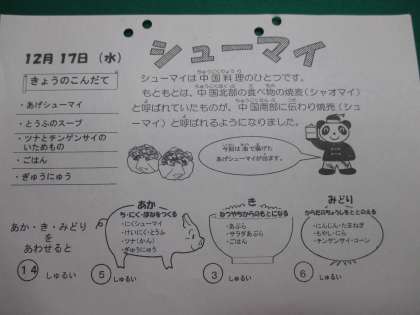 12月17日（水）
シューマイ
きょうのこんだて
・あげシューマイ
・とうふのスープ
・ツナとチンゲンサイの
いためもの
・ごはん
・ぎゅうにゅう
シューマイは中国料理のひとつです。
もともとは、中国北部の食べ物の焼麦（シャオマイ）
と呼ばれていたものが、中国南部に伝わり焼売（シュ
ーマイ）と呼ばれるようになりました。
今回は油で揚げた
あげシューマイが出ます。
あか・き・みどり
を
あわせると
14 しゅるい
あか
ち・にく・ほねをつくる
・にくシューマイ
・けいにく・とうふ
・ツナ（かん）
・ぎゅうにゅう
5 しゅるい
き
ねつやちからのもとになる
・あぶら
・サラダあぶら
・ごはん
3 しゅるい
みどり
からだのちょうしをととのえる
・にんじん・たまねぎ
・もやし・にら
・チンゲンサイ・コーン
6 しゅるい